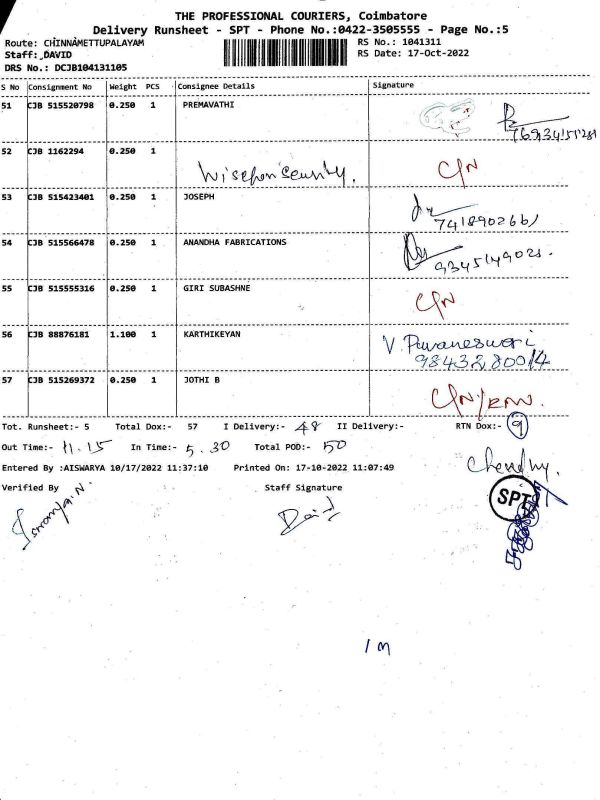 THE PROFESSIONAL COURIERS, Coimbatore
Delivery Runsheet - SPT - Phone No.:0422-3505555 - Page No.:5
Route: CHINNAMETTUPALAYAM RS No.: 1041311
Staff: DAVID RS Date: 17-Oct-2022
DRS No.: DCJB104131105
S No Consignment No Weight PCS Consignee Details Signature
51 CJB 515520798 0.250 1 PREMAVATHI
52 CJB 1162294 0.250 1
C/N
53 CJB 515423401 0.250 1 JOSEPH
7418902661
54 CJB 515566478 0.250 1 ANANDHA FABRICATIONS
9345149021.
55 CJB 515555316 0.250 1 GIRI SUBASHNE
C/N
56 CJB 88876181 1.100 1 KARTHIKEYAN V. Puvaneswari
9843280014
57 CJB 515269372 0.250 1 JOTHI B
C/N
Tot. Runsheet:- 5 Total Dox:- 57 I Delivery:- 48 II Delivery:- RTN Dox:- 9
Out Time:- 11.15 In Time:- 5.30 Total POD:- 50
Entered By :AISWARYA 10/17/2022 11:37:10 Printed On: 17-10-2022 11:07:49
Verified By Staff Signature SPT
David
1 M